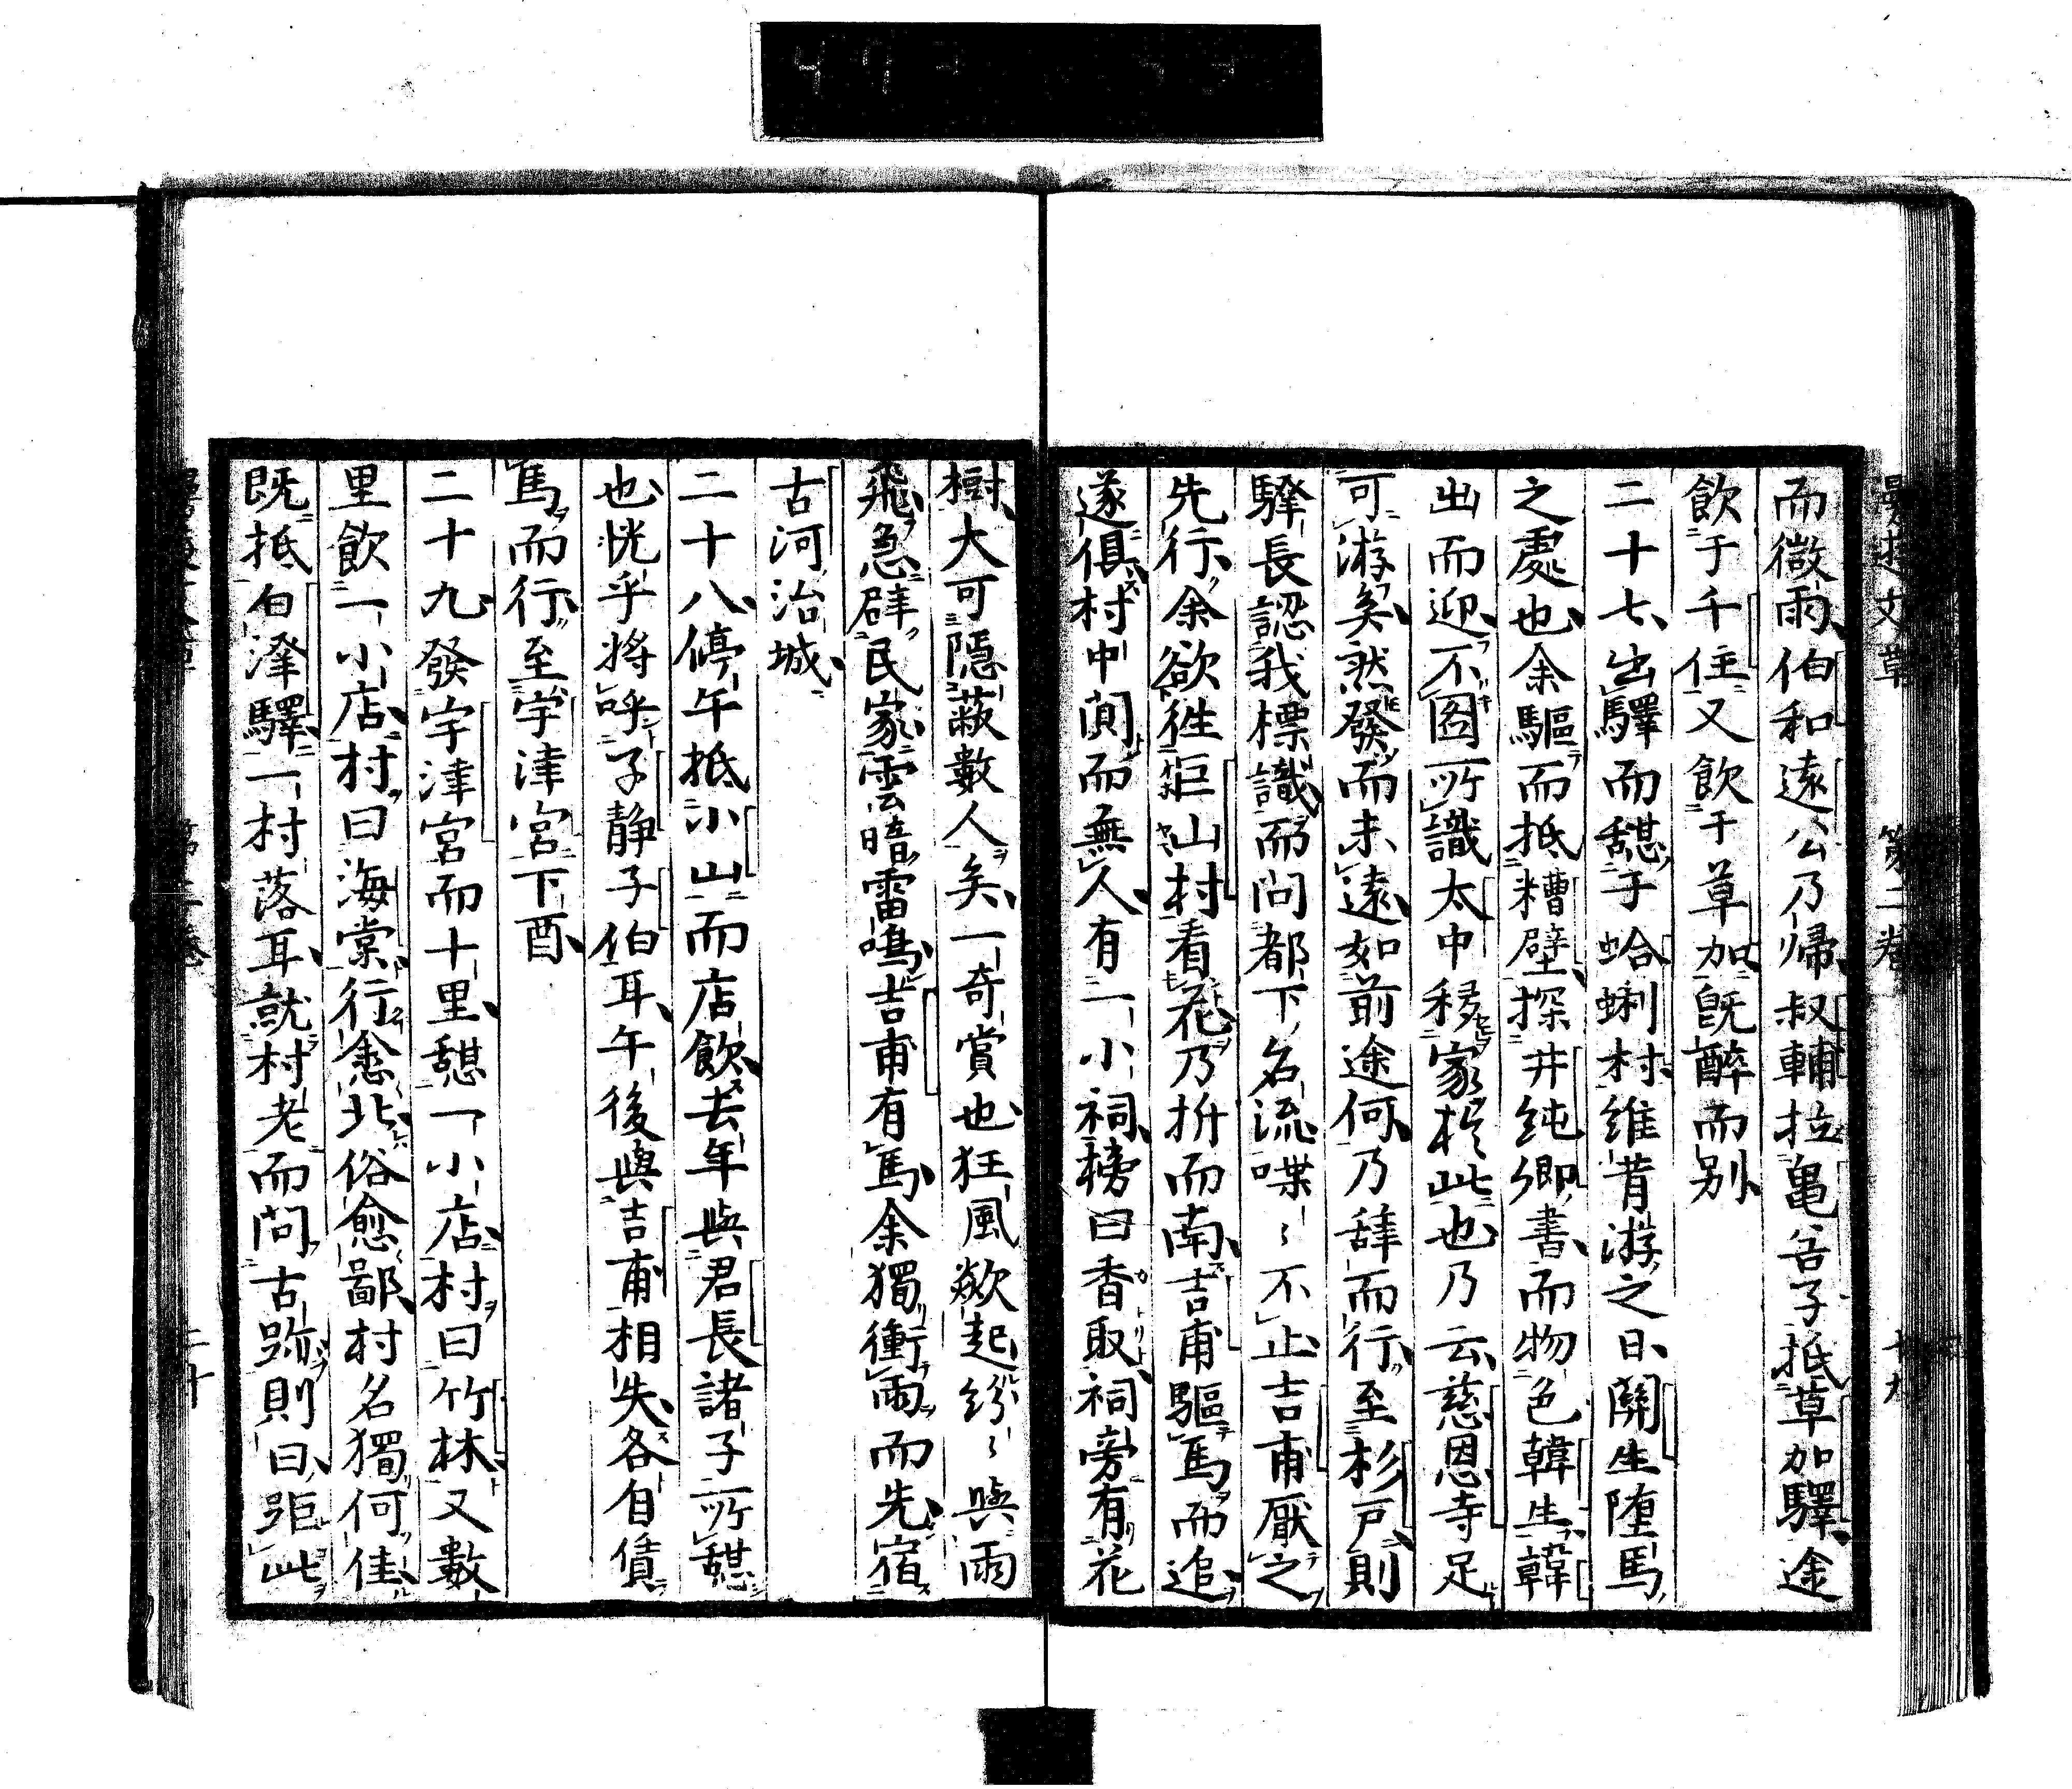 而微雨伯和遠公乃帰叔輔拉亀谷子抵草加驛途
飲于千住又飲于草加既醉而別
二十七出驛而憇于蛤蜊村維昔游之日關生堕馬
之處也余驅而抵糟壁探井純卿書而物色韓生韓
出而迎不圖所識太中移家於此也乃云慈恩寺足
可游矣然發而未遠如前途何乃辞而行至杉戸則
驛長認我標識而問都下名流喋〻不止吉甫厭之
先行余欲徃巨山村看花乃折而南吉甫驅馬而追
遂俱村中闃而無人有一小祠榜曰香取祠旁有花
樹大可隠蔽數人矣一奇賞也狂風歘起紛〻與雨
飛急辟民家雲暗雷鳴吉甫有馬余獨衝雨而先宿
古河治城
二十八停午抵小山而店飲去年與君長諸子所憇
也恍乎將呼子静子伯耳午後與吉甫相失各自僨
馬而行至宇津宮下酉
二十九發宇津宮而十里憇一小店村曰竹林又數
里飲一小店村曰海棠行愈北俗愈鄙村名獨何佳
既抵白澤驛一村落耳就村老而問古跡則曰距此
第二卷
二十